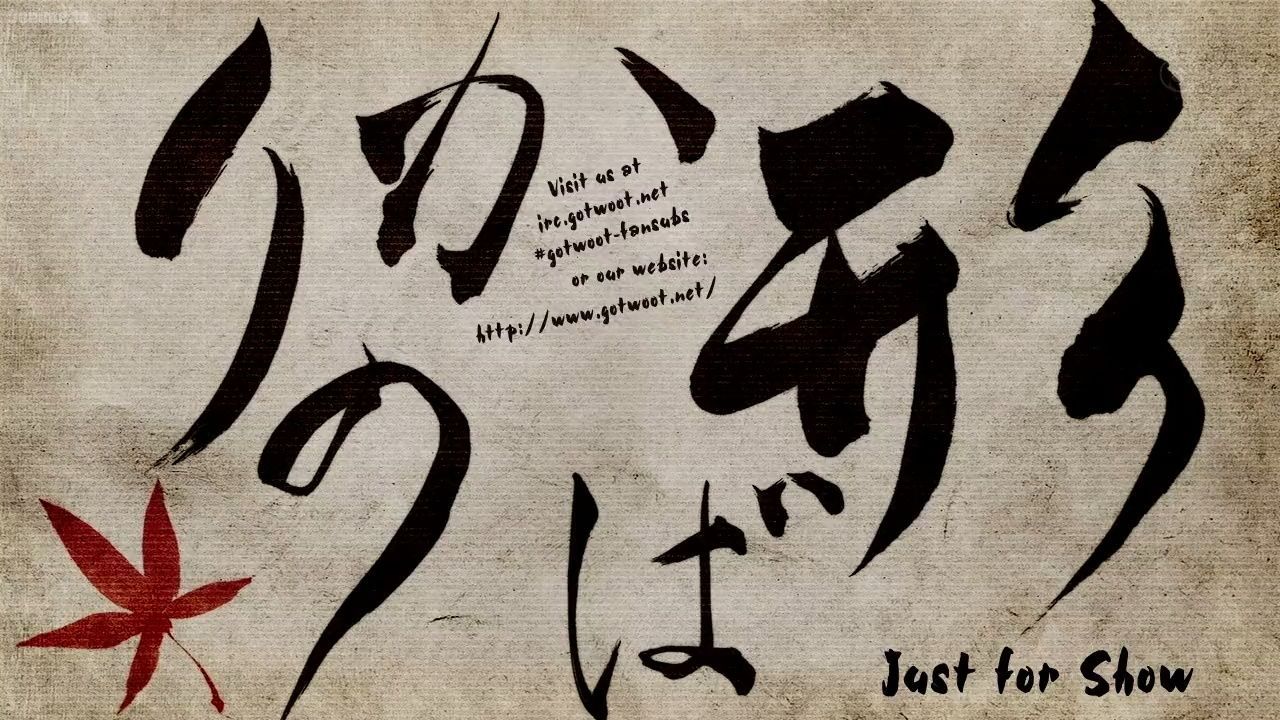 形ばかりの
Visit us at
irc.gotwoot.net
#gotwoot-fansubs
or our website:
http://www.gotwoot.net/
Just for Show